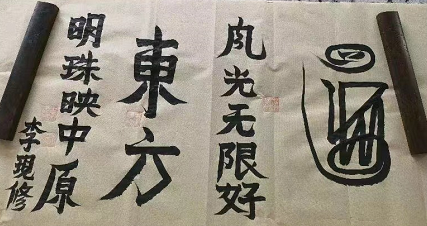 风光无限好
東方
明珠映中原
李現修